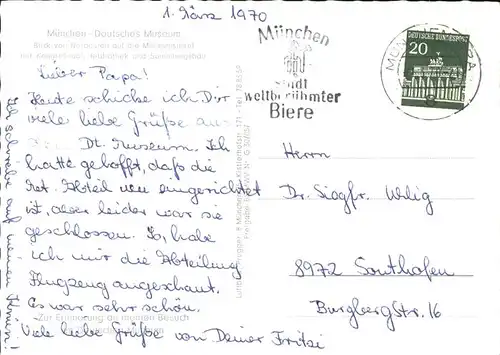 1. März 1970
München - Deutsches Museum
Lieber Papa!
Heute schicke ich Dir
viele liebe Grüße aus
Dt. Museum. Ich
hatte gehofft, daß die
Abteil neu eingerichtet
ist, aber leider war sie
geschlossen. So, habe
ich mir die Abteilung
Flugzeug angeschaut.
Es war sehr schön.
Viele liebe Grüße von Deiner Fritzi
Ich schreibe auf meinen Knien!
Zur Erinnerung an meinen Besuch
München
Stadt
weltberühmter
Biere
DEUTSCHE BUNDESPOST
20
MÜNCHEN
Herrn
Dr. Siegfr. Wilig
8972 Sonthofen
Burgbergstr. 16